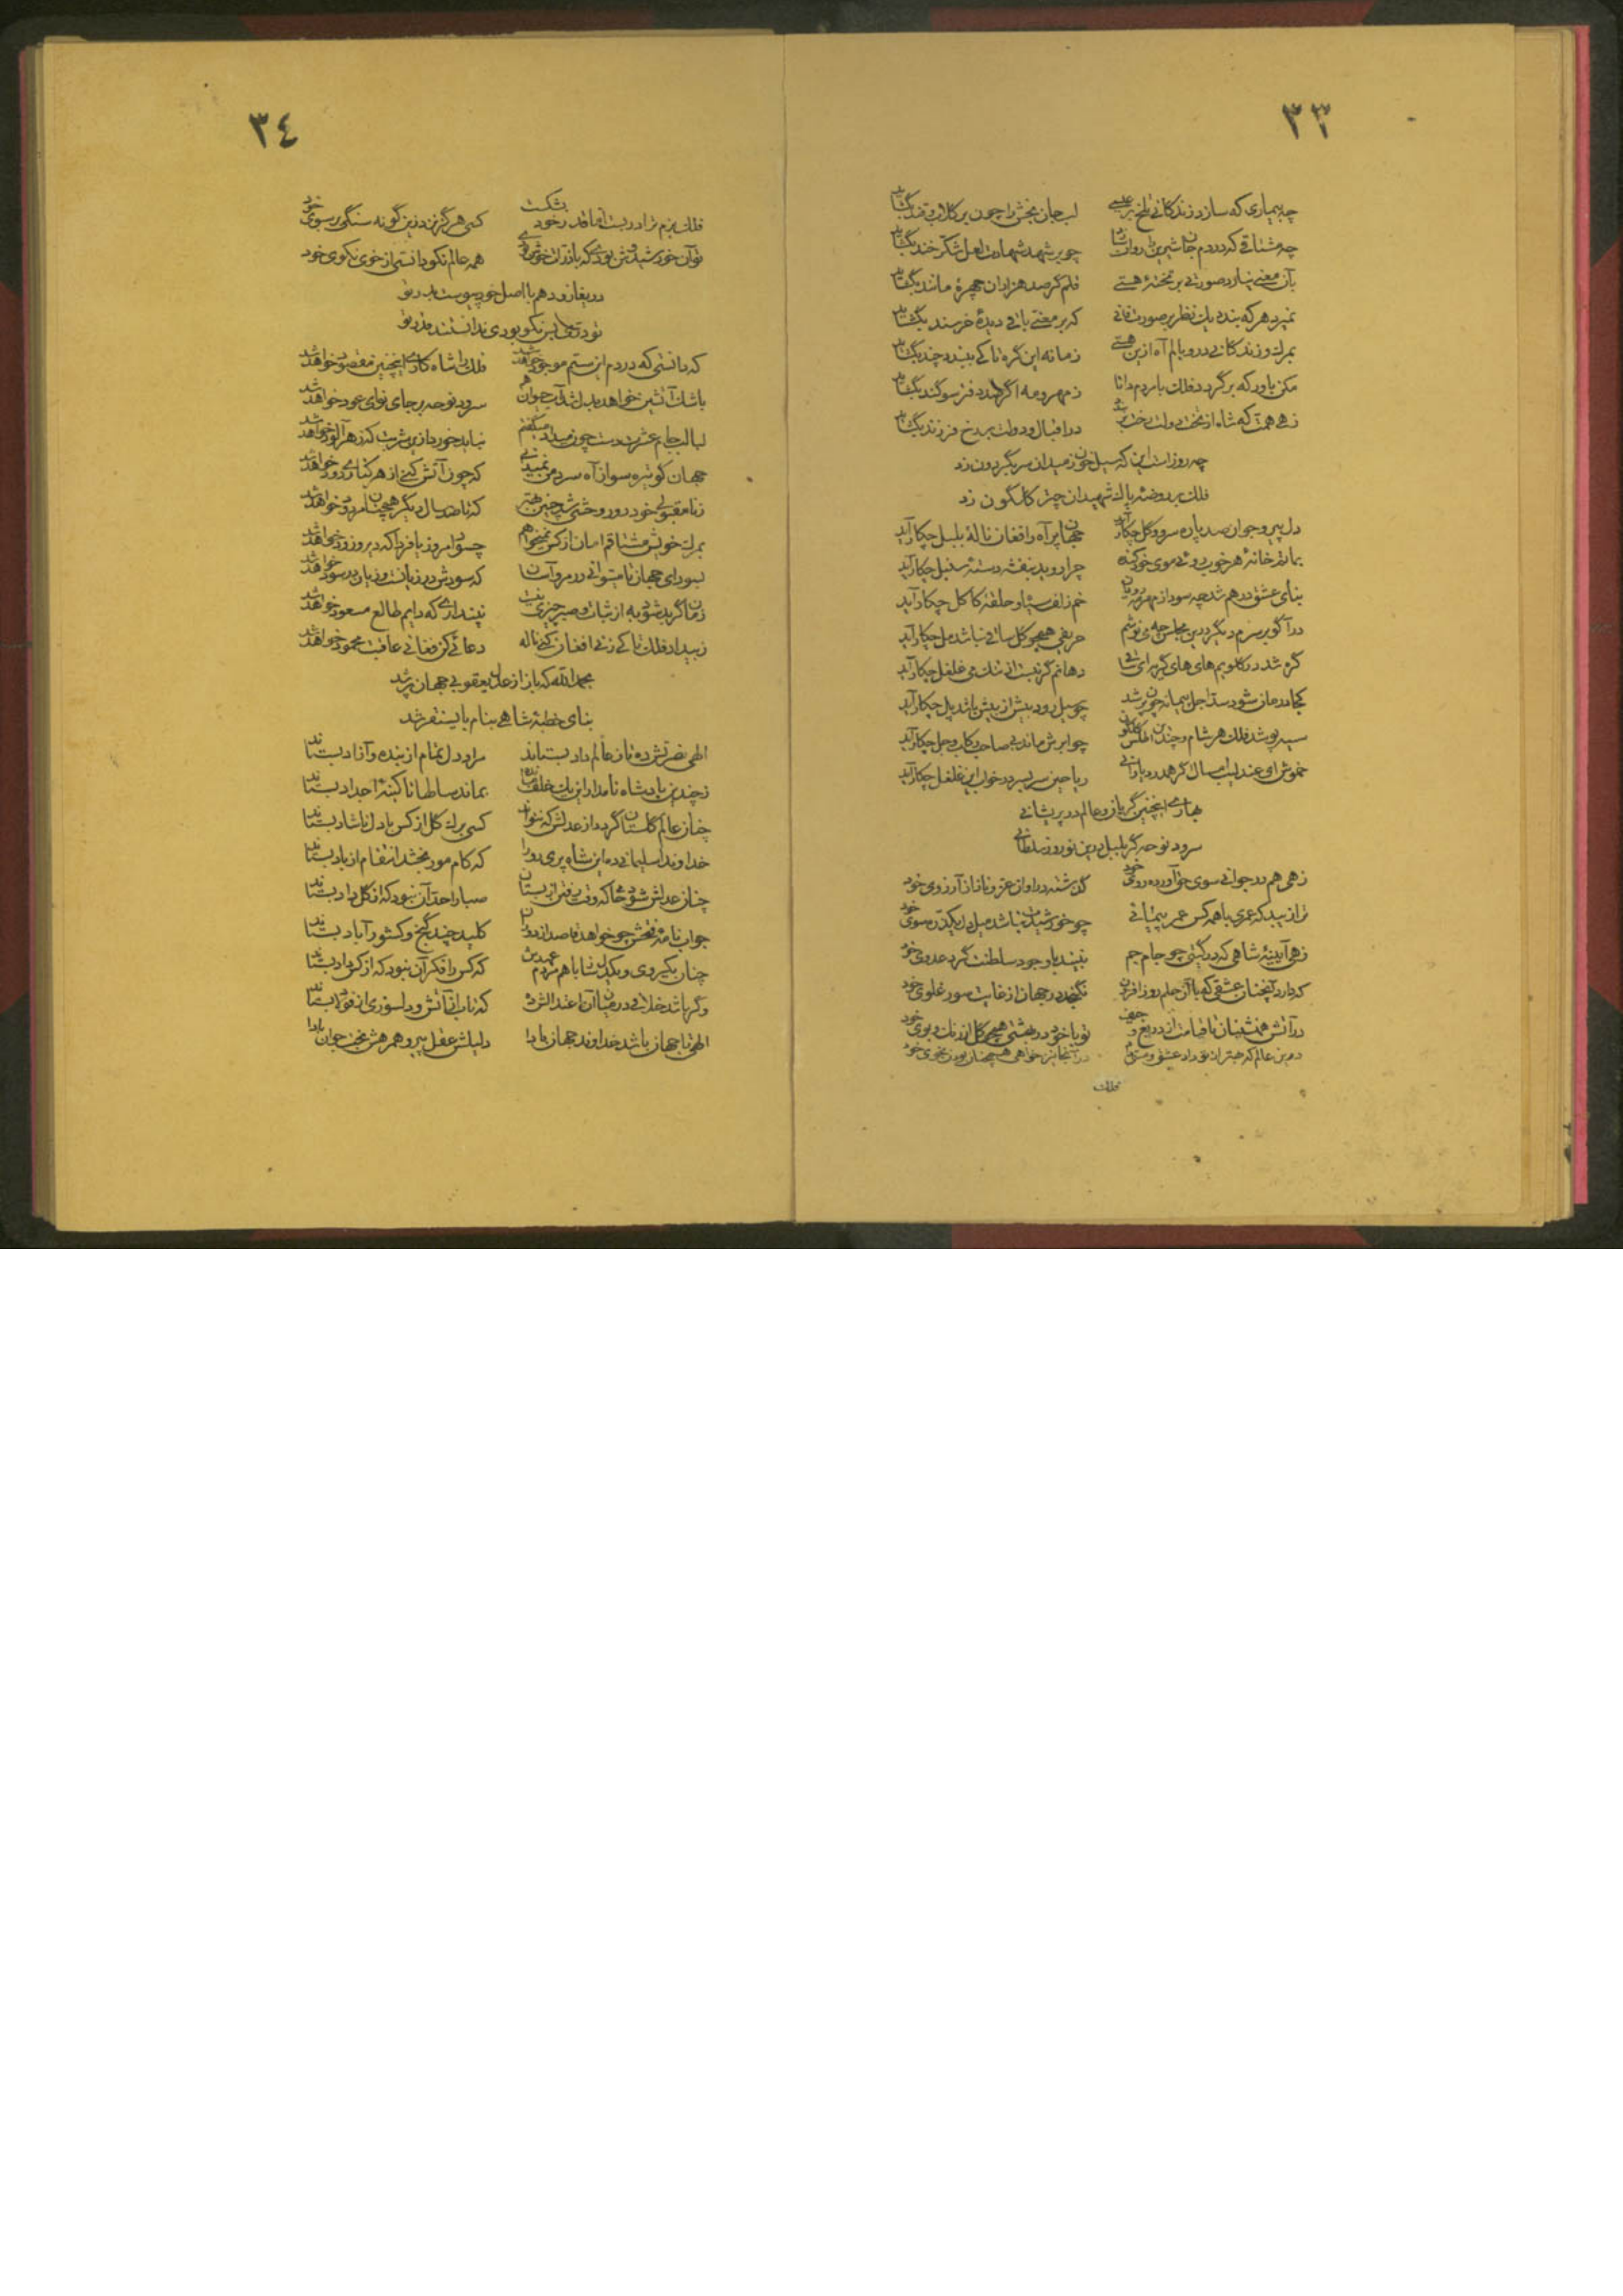 ٣٣
چه بیماری که سازد زندگانی تلخ بر عیسی لب جان بخش را چون بر گلاب و قند بگشاید
چه مشتاقی که در دم جان شیرین را روان سازد چو بر شهد شهادت لعل شکرخند بگشاید
بآن معنی نیارد صورتی بر تختهٔ هستی قلم گر صد هزاران چهرهٔ مانند بگشاید
نمیرد هر که بندد یک نظر بر صورت فانی که بر معنی باقی دیدهٔ خرسند بگشاید
بمرگ و زندگانی در وبالم آه ازین هستی زمانه این گره تا کی ببندد چند بگشاید
مکن باور که برگردد فلک با مردم دانا ز مهر و مه اگر صد دفتر سوگند بگشاید
زهی همت که شاه از تخت دولت رخت بر در اقبال و دولت بر رخ فرزند بگشاید
چه روزست این که سیل خون ز میدان سر بگردون زد
فلک بر روضهٔ پاک شهیدان چتر گلگون زد
دل پیر و جوان صد پاره سرو و گل چکار آید جهان پر آه و افغان نالهٔ بلبل چکار آید
بماتم خانهٔ هر خوب روئی موی خود کنده چرا روید بنفشه دستهٔ سنبل چکار آید
بنای عشق در هم شد چه سود از مهر مه رویان خم زلف سیاه و حلقهٔ کاکل چکار آید
در آ گو بر سرم دیگر درین مجلس چه می نوشم حریفی همچو گل ساقی نباشد مل چکار آید
گره شد در گلویم های های گریه ای ساقی دهانم گر نبست از تنگ می غلغل چکار آید
کجا درمان شود سد اجل پیمانه چون پر شد چو سیل رود بیش از پیش باشد پل چکار آید
سیه پوشد فلک هر شام و چندین اطلس گلگون چو ابرش ماند بی صاحب رکاب و جل چکار آید
خموش ای عندلیب امسال گر همدرد یارانی ریاحین سر بسر در خواب این غلغل چکار آید
بهاری اینچنین گریان و عالم در پریشانی
سرود نوحه گر بلبل درین نوروز سلطانی
زهی هم در جوانی سوی حق آورده روی خود گذشته در اوان عز و ناز از آرزوی خود
ترا زیبد که عمری با همه کس عمر پیمائی چو خورشیدت نباشد میل دل یکذره سوی خود
زهی آیینهٔ شاهی که در گیتی چو جام جم نبیند با وجود سلطنت گرد عدوی خود
که دارد آنچنان عشقی که با آن حلم روز افزون نگنجد در جهان از غایت سور غلوی خود
در آتش همنشینان تا قیامت از دریغ و تو با خود در بهشتی همچو گل از رنگ و بوی خود
درین عالم که بهتر از تو داد عشق و مستی در آنجا نیز خواهی همچنان بودن بخوی خود
فلک
٣٤
فلک بزم ترا در بست اما قدر خود بشکست کسی هرگز نزد زین گونه سنگی بر سبوی خود
تو آن خورشیدوش بودی که با ذرات خوش بودی همه عالم نکو دانستی از خوی نکوی خود
دریغا زود هم با اصل خود پیوست بدر تو
تو در نیکی بس نکو بودی ندانستند قدر تو
که دانستی که در دم این ستم موجود خواهد شد فلک را شاه کاری اینچنین مقصود خواهد شد
باشک آتشین خواهد بدل شد آب حیوان هم سرود نوحه بر جای نوای عود خواهد شد
لبالب جام عشرت دست چون میداد میگفتم نباید خورد ازین شربت که زهرآلود خواهد شد
جهان گو تیره سو از آه سرد من نمیبینی که چون آتش کنی از هر کناری دود خواهد شد
ز نامقبولی خود دور وحشی شد چنین بهتر که تا صد سال دیگر همچنان مردود خواهد شد
بمرگ خویش مشتاقم امان از کس نمیخواهم چه سود امروز یا فردا که دیر و زود خواهد شد
بسودای جهان تا میتوانی در مرو آسان که سودش در زیانست و زیان در سود خواهد شد
زمان گر بد شود به از ثبات و صبر چیزی نیست نپنداری که دایم طالع مسعود خواهد شد
ز بیداد فلک تا کی زنی افغان کنی ناله دعائی کن فغانی عاقبت محمود خواهد شد
بحمدالله که باز از عدل یعقوبی جهان پر شد
بنای خطبهٔ شاهی بنام بایسنقر شد
الهی نصرتش ده تا ز عالم داد بستاند مراد دل تمام از بنده و آزاد بستاند
ز چندین پادشاه نامدار این یک خلف مانده بماند سالها تا کینهٔ اجداد بستاند
چنان عالم گلستان گردد از عدلش که نتواند کسی برگ گل از کس با دل ناشاد بستاند
خداوندا سلیمانی ده این شاه پری رو را که کام مور بخشد انتقام از باد بستاند
چنان عدلش شود حاکم که وقت رفتن از بستان صبا را حد آن نبود که از گل داد بستاند
جواب نامهٔ فتحش چو خواهد قاصد از دوران کلید چند گنج و کشور آباد بستاند
چنان یکروی و یکدل ساز با هم مردم عهدش که کس را فکر آن نبود که از کس داد بستاند
وگر باشد خلافی در میان آن اعتدالش ده که تاب از آتش و دلسوزی از فولاد بستاند
الهی تا جهان باشد خداوند جهان بادا دلیلش عقل پیر و همرهش بخت جوان بادا